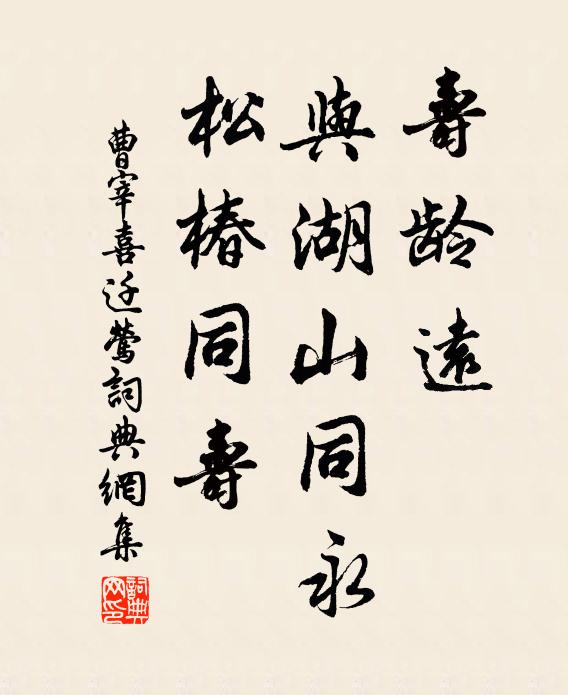 壽龄遠
與湖山同永
松椿同壽
曹宰喜迁鶯詞典網集
詞典
网印